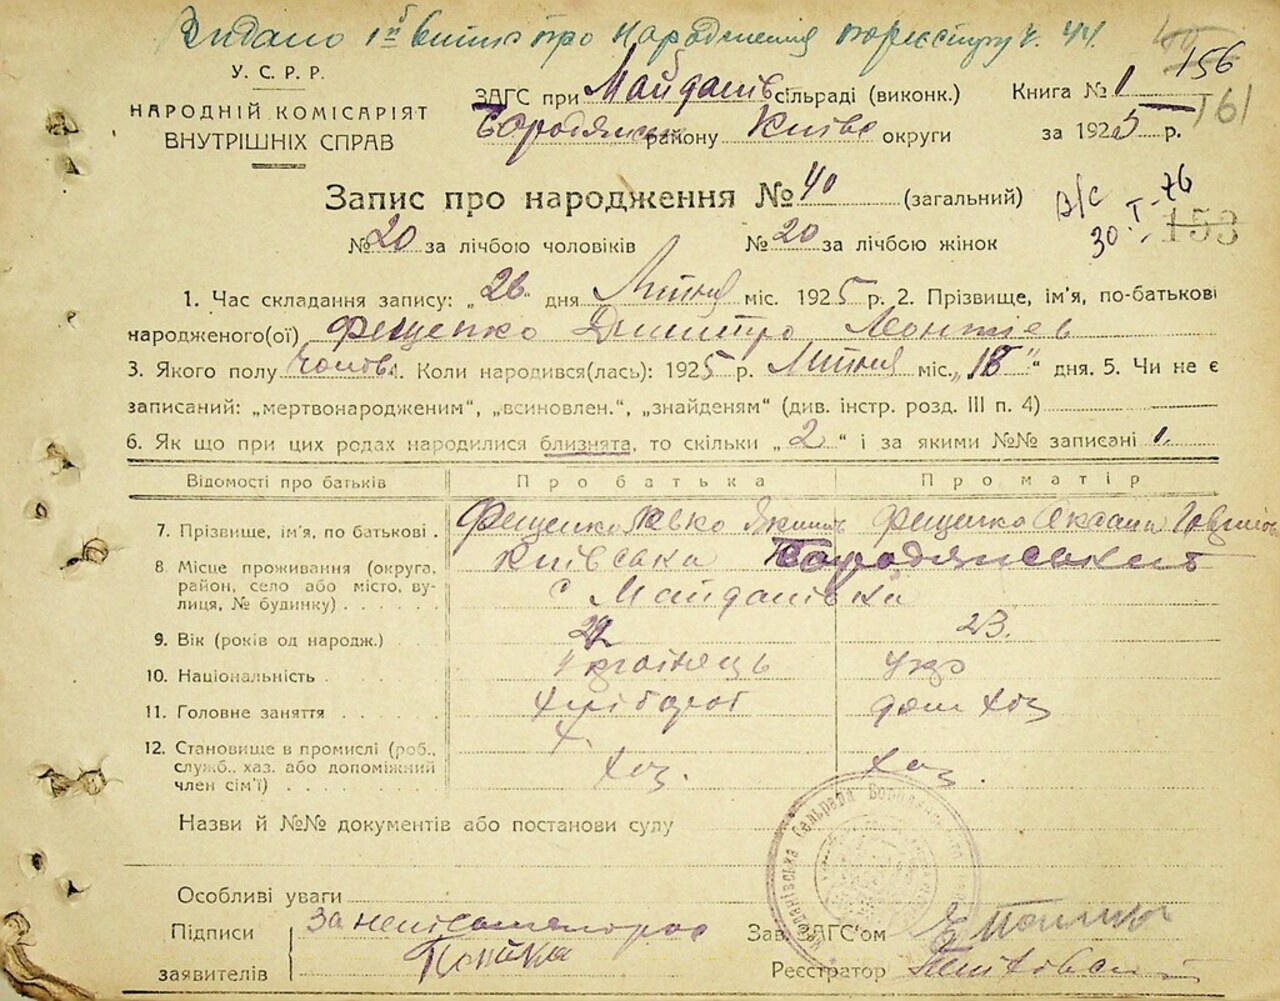 Видано про народження по реєстру ч. 44.
У. С. Р. Р.
НАРОДНІЙ КОМІСАРІЯТ
ВНУТРІШНІХ СПРАВ
ЗАГС при Майданів сільраді (виконк.)
Книга № 1
156
161
Бородянськ району Київс округи
за 1925 р.
Запис про народження № 40 (загальний)
В/С
30 I - 76
153
№ 20 за лічбою чоловіків № 20 за лічбою жінок
1. Час складання запису: „26" дня Липня міс. 1925 р. 2. Прізвище, ім'я, по-батькові
народженого(ої) Фещенко Дмитро Леонтієв
3. Якого полу Чолов. 4. Коли народився(лась): 1925 р. Липня міс. „18" дня. 5. Чи не є
записаний: „мертвонародженим", „всиновлен.", „знайденям" (див. інстр. розд. III п. 4)
6. Як що при цих родах народилися близнята, то скільки „2" і за якими №№ записані 1.
Відомості про батьків Про батька Про матір
7. Прізвище, ім'я, по батькові . Фещенко Фещенко Оксана
8. Місце проживання (округа, район, село або місто, вулиця, № будинку) Київська Бородянський
с Майданівка
9. Вік (років од народж.) 23.
10. Національність Українець укр
11. Головне заняття Хлібороб дом хоз
12. Становище в промислі (роб., служб., хаз. або допоміжний член сім'ї) Хоз. Хоз.
Назви й №№ документів або постанови суду
Майданівська Сельрада
Особливі уваги
Підписи заявителів За неписьменного
Зав. ЗАГС'ом
Реєстратор